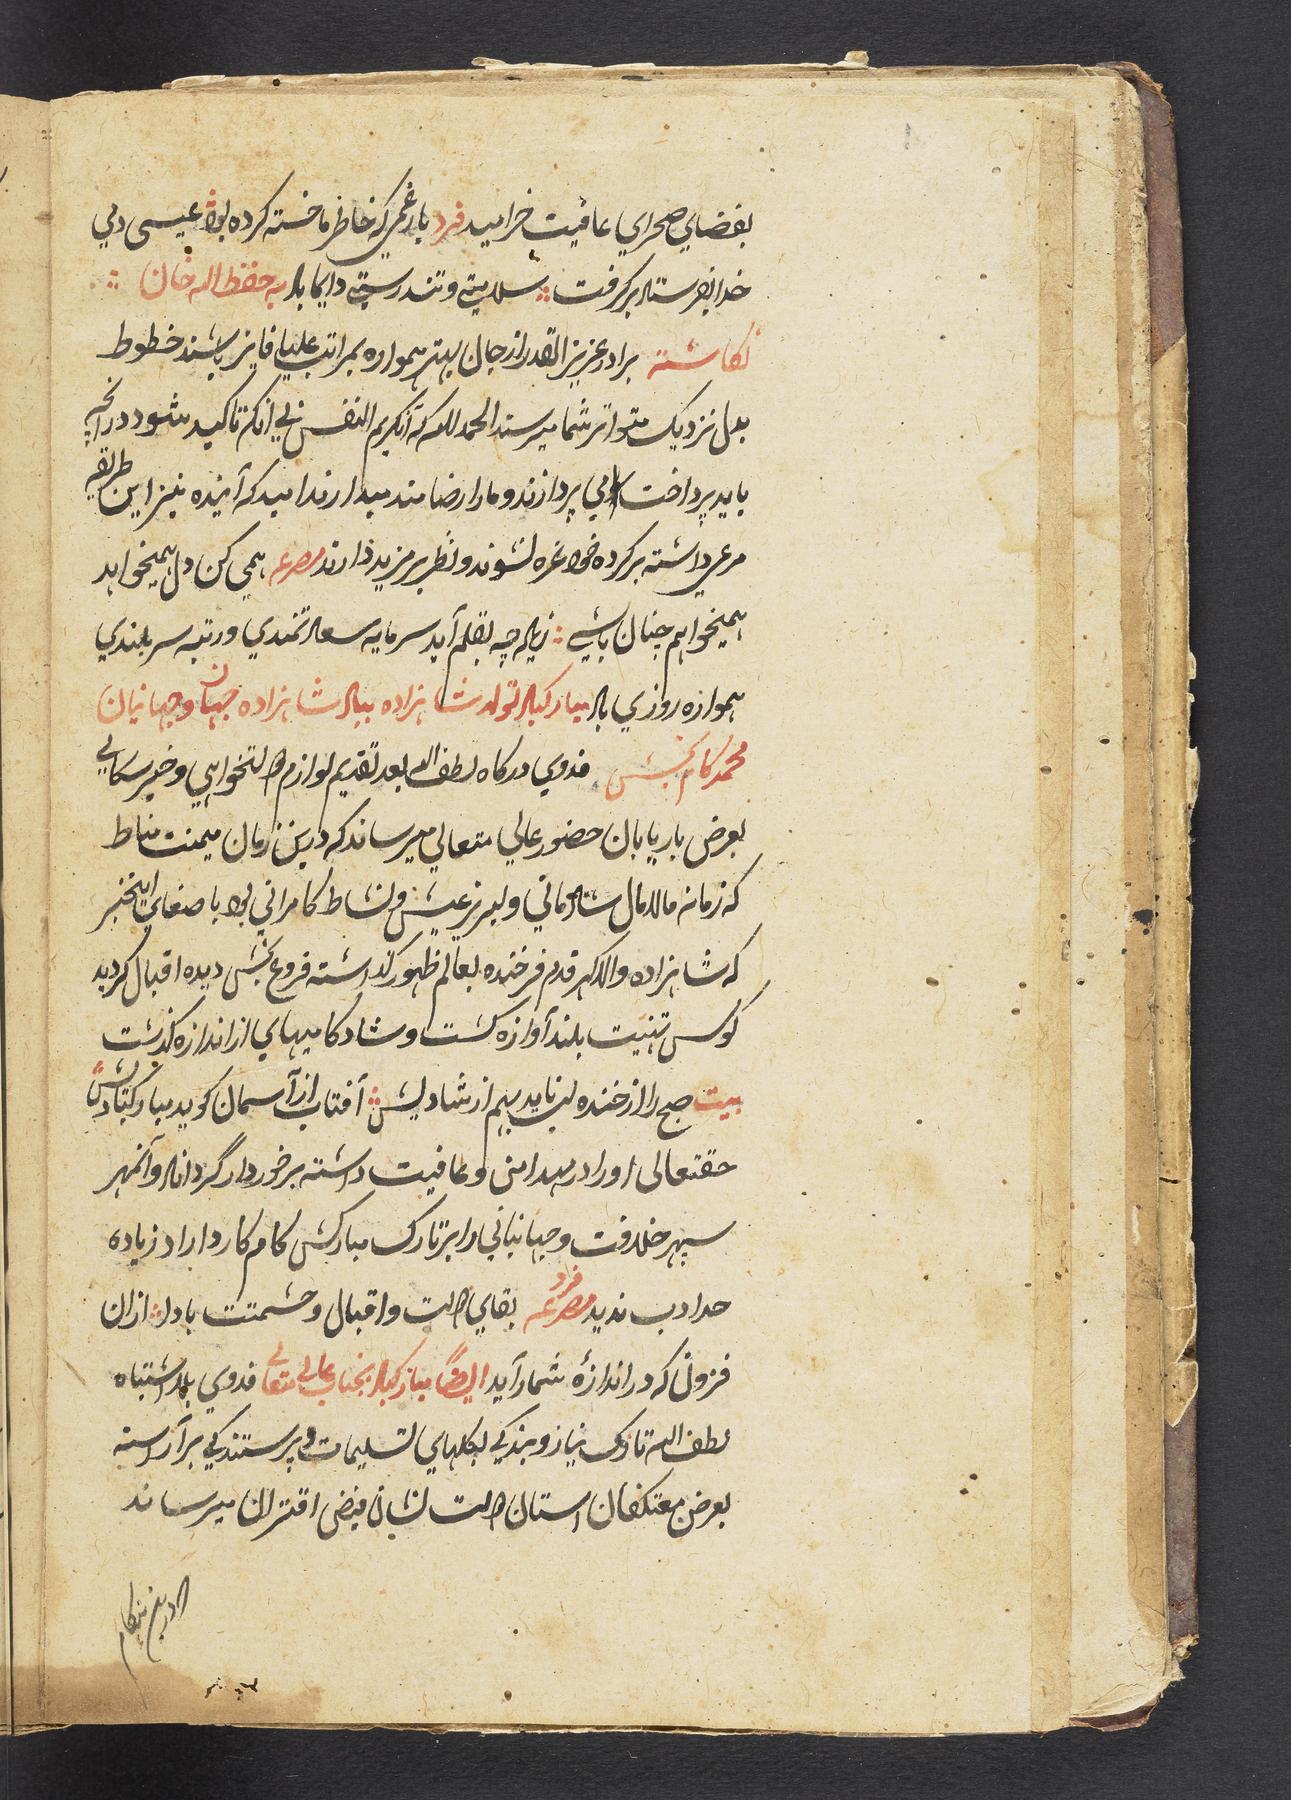 بفضاي صحراي عافيت خراميد فرد بار غمي که خاطر ما خسته کرده بود عيسى دمي
خدا بفرستاد برگرفت سلامتي و تندرستي دايما باد به حفظ الله خان
نگاشته برادر عزيز القدر از جان بهتر همواره بمراتب عليا فايز باشند خطوط
بدل نزديک متواتر شما ميرسند الحمد لله که آنکريم النفس بي آنکه تاکيد بشود در آنچه
بايد پرداخت مي پردازند و ما را رضامند ميدارند اميد که آينده نيز اين طريقه
مرعي داشته بر کرده خود غره نشوند و نظر بر مزيد دارند مصرعه همي کن دل هميخواهد
هميخواهم چنان باشي زياده چه بقلم آيد سرمايه سعادتمندي و رتبه سربلندي
همواره روزي باد مبارکباد تولد شاهزاده بپادشاهزاده جهان و جهانيان
محمد کام بخش فدوي درگاه لطف الله بعد تقديم لوازم دولتخواهي و خيرسگالي
بعرض بار يابان حضور عالي متعالي ميرساند که درين زمان ميمنت مناط
که زمانه مالامال شادماني و لبريز عيش و نشاط کامراني بود باصغاي اينخبر
که شاهزاده والاگهر قدم فرخنده بعالم ظهور گذاشته فروغ بخش ديده اقبال گرديد
کوس تهنيت بلند آوازه گشت و شادکاميهاي از اندازه گذشت
بيت صبح را از خنده لب نايد بهم از شاديش آفتاب از آسمان گويد مبارکبادش
حقتعالى او را در مهد امن و عافيت داشته برخوردار گرداناد و آنمهر
سپهر خلافت و جهانباني را بر تارک مبارکش کام کار دارد زياده
حد ادب نديد مصرعه فرد بقاي دولت و اقبال و حشمتت بادا ازان
فزون که در اندازهٔ شمار آيد ايضاً مبارکباد بجناب عالي متعالي فدوي بلا اشتباه
لطف الله تارک نياز و بندگي بگلهاي تسليمات و پرستندگي بر آراسته
بعرض معتکفان آستان دولت نشان فيض اقتران ميرساند
که درين هنگام